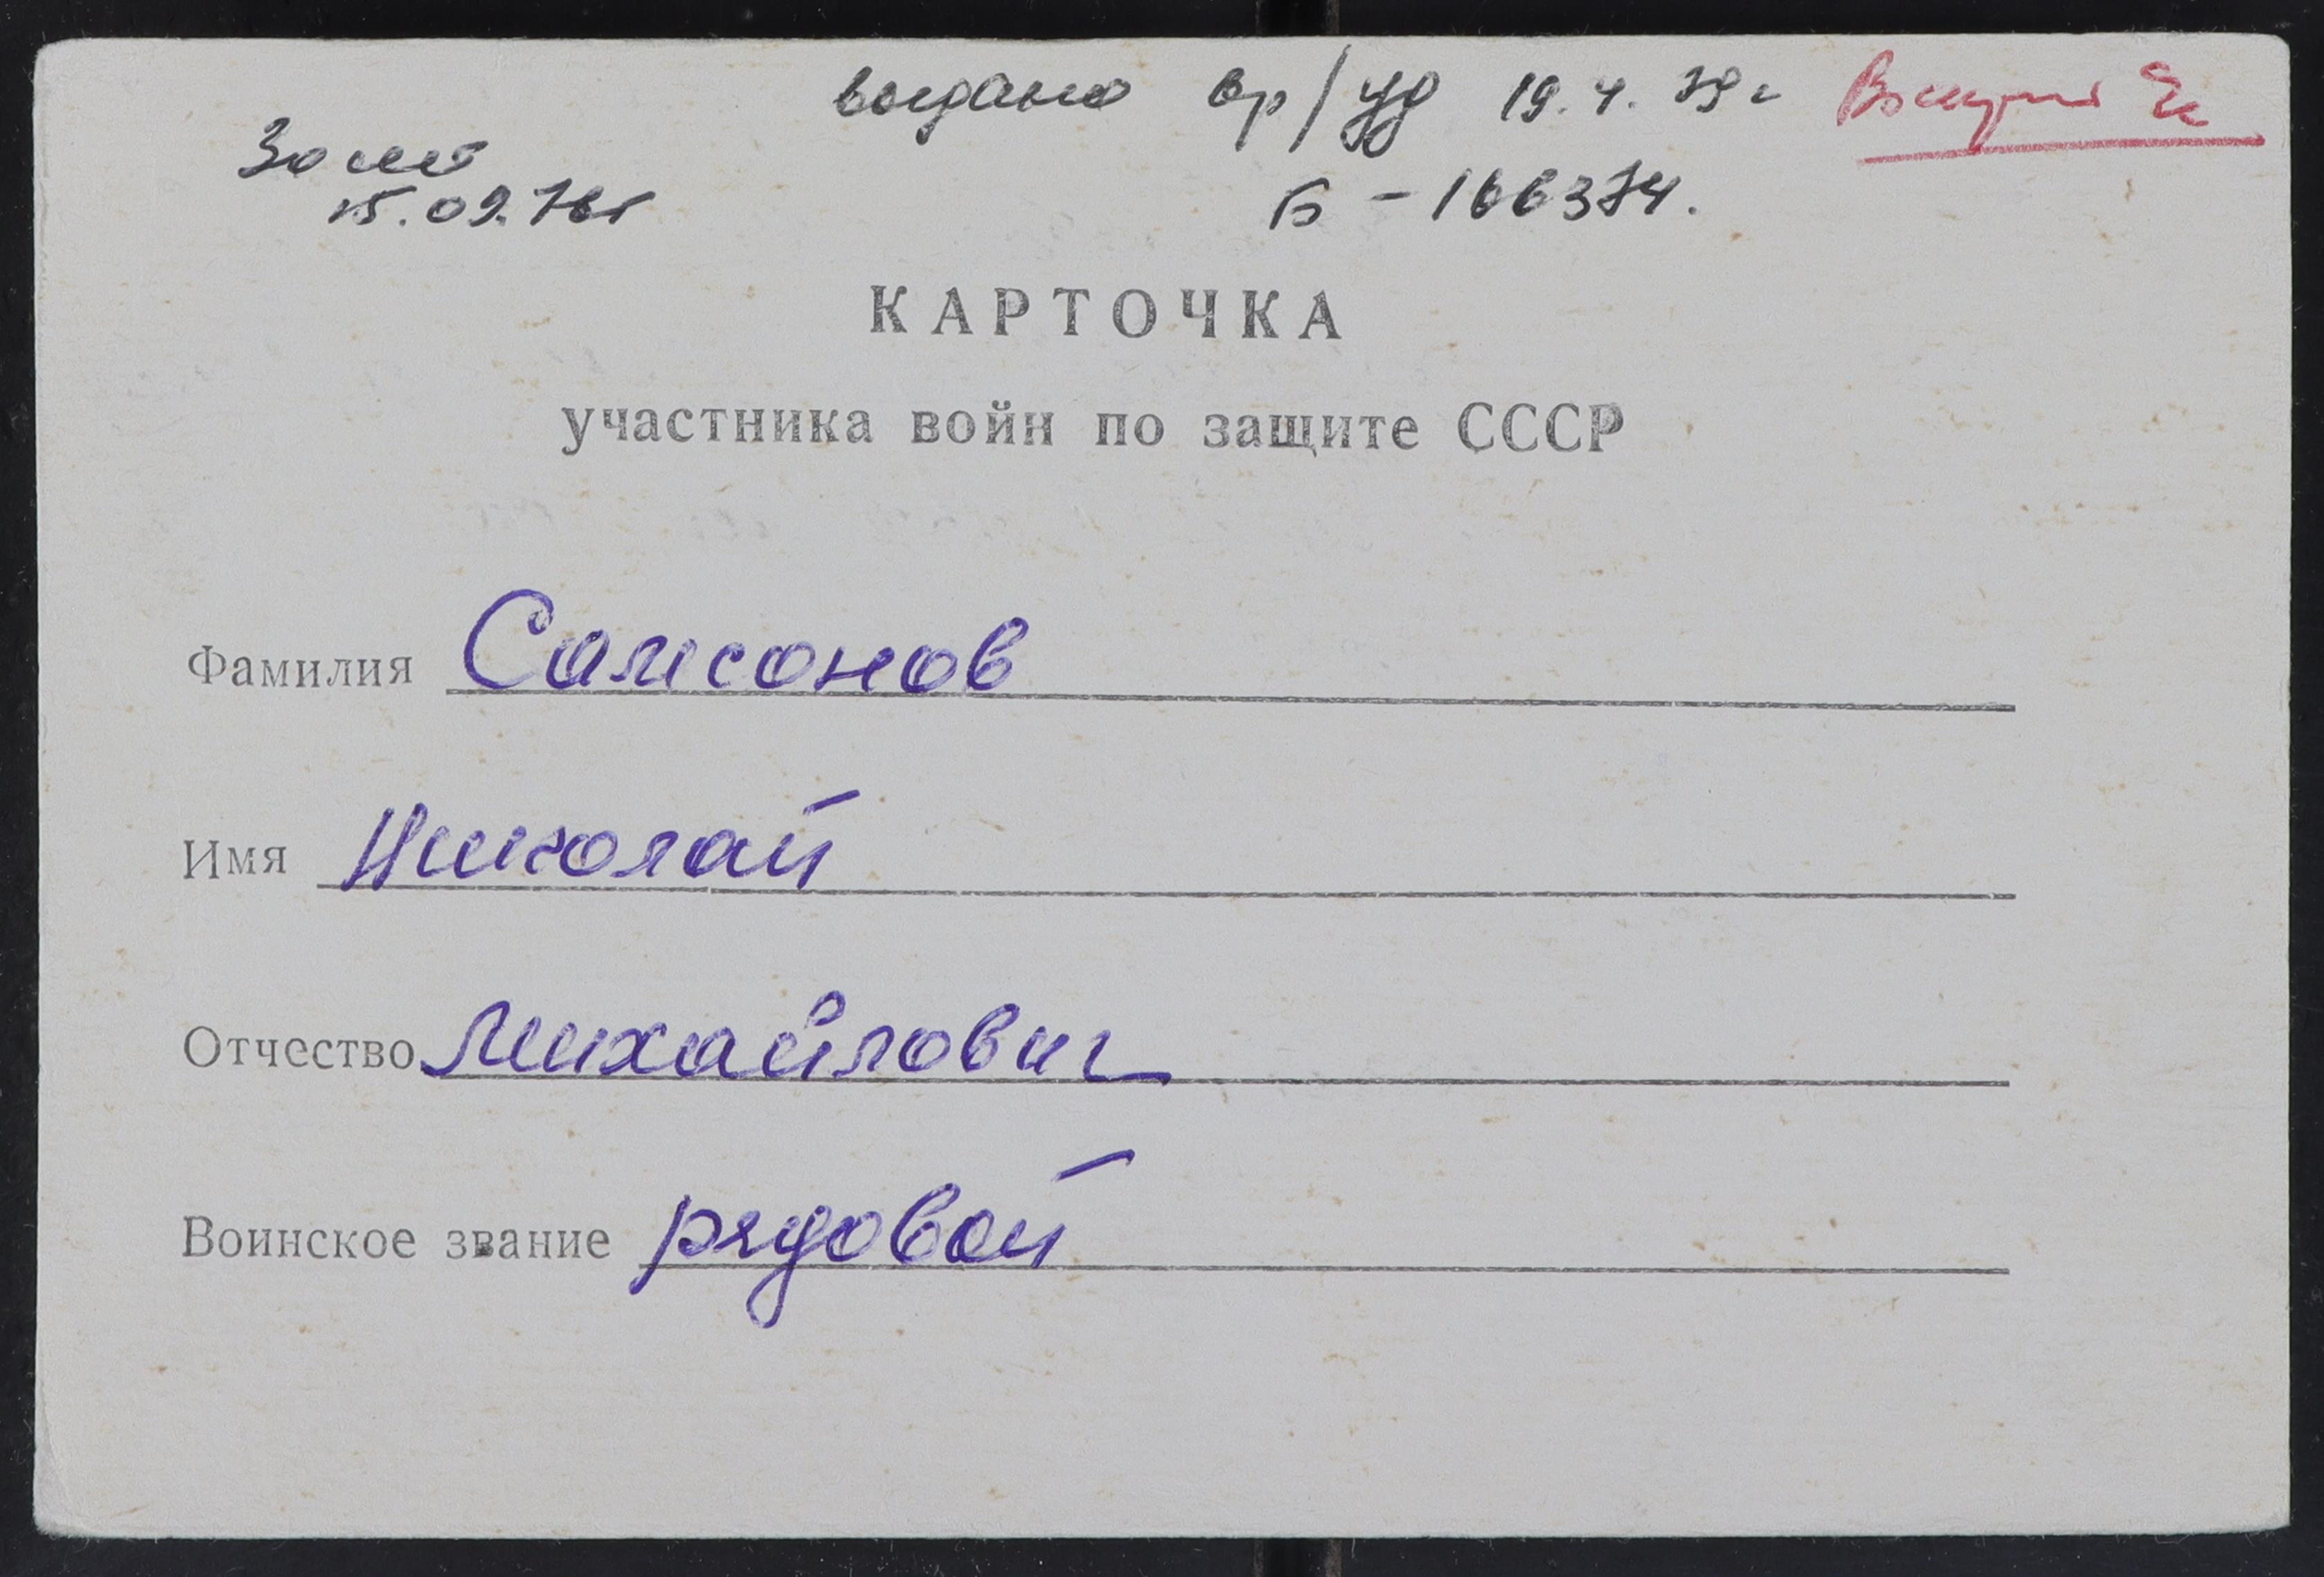 выдано вр/уд 19.4.79г
15.09.78г
Б - 166374.
КАРТОЧКА
участника войн по защите СССР
Фамилия Самсонов
Имя Николай
Отчество Михайлович
Воинское звание рядовой